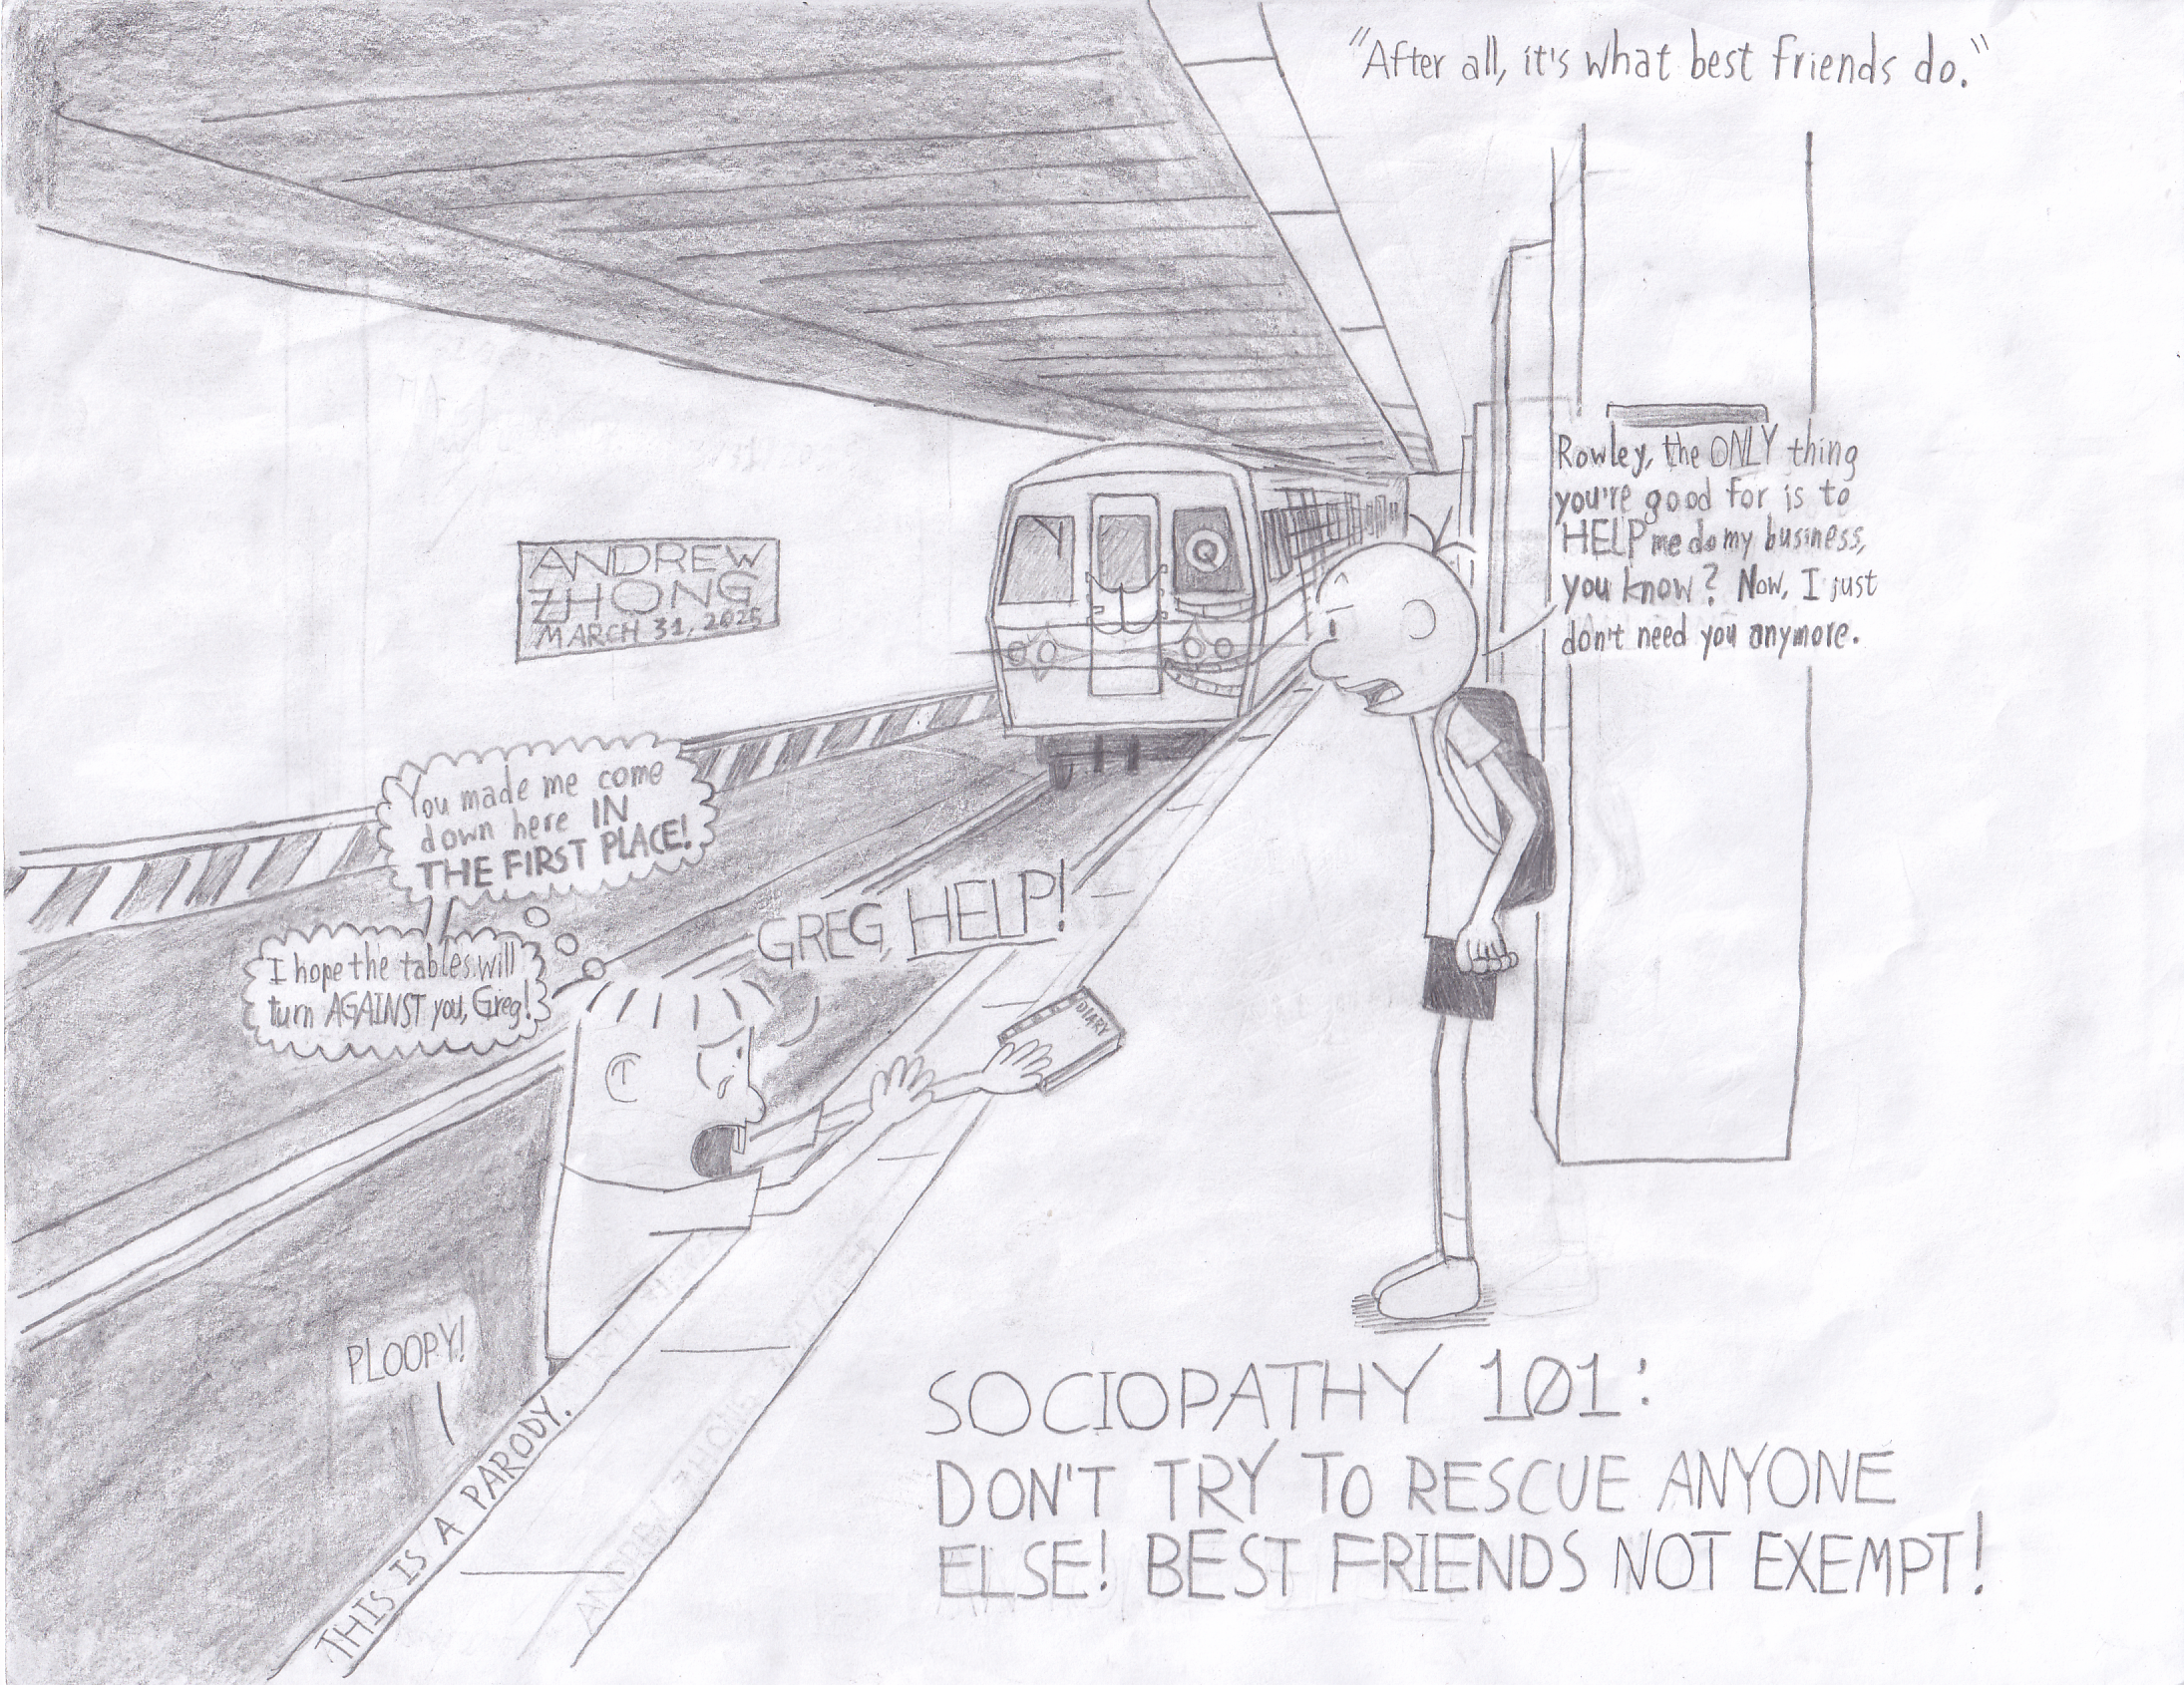 "After all, it's what best friends do."
Rowley, the ONLY thing
you're good for is to
HELP me do my business,
you know? Now, I just
don't need you anymore.
Q
ANDREW
ZHONG
MARCH 31, 2025
You made me come
down here IN
THE FIRST PLACE!
I hope the tables will
turn AGAINST you, Greg!
GREG, HELP!
DIARY
PLOOPY!
THIS IS A PARODY.
ANDREW ZHONG
SOCIOPATHY 101:
DON'T TRY TO RESCUE ANYONE
ELSE! BEST FRIENDS NOT EXEMPT!